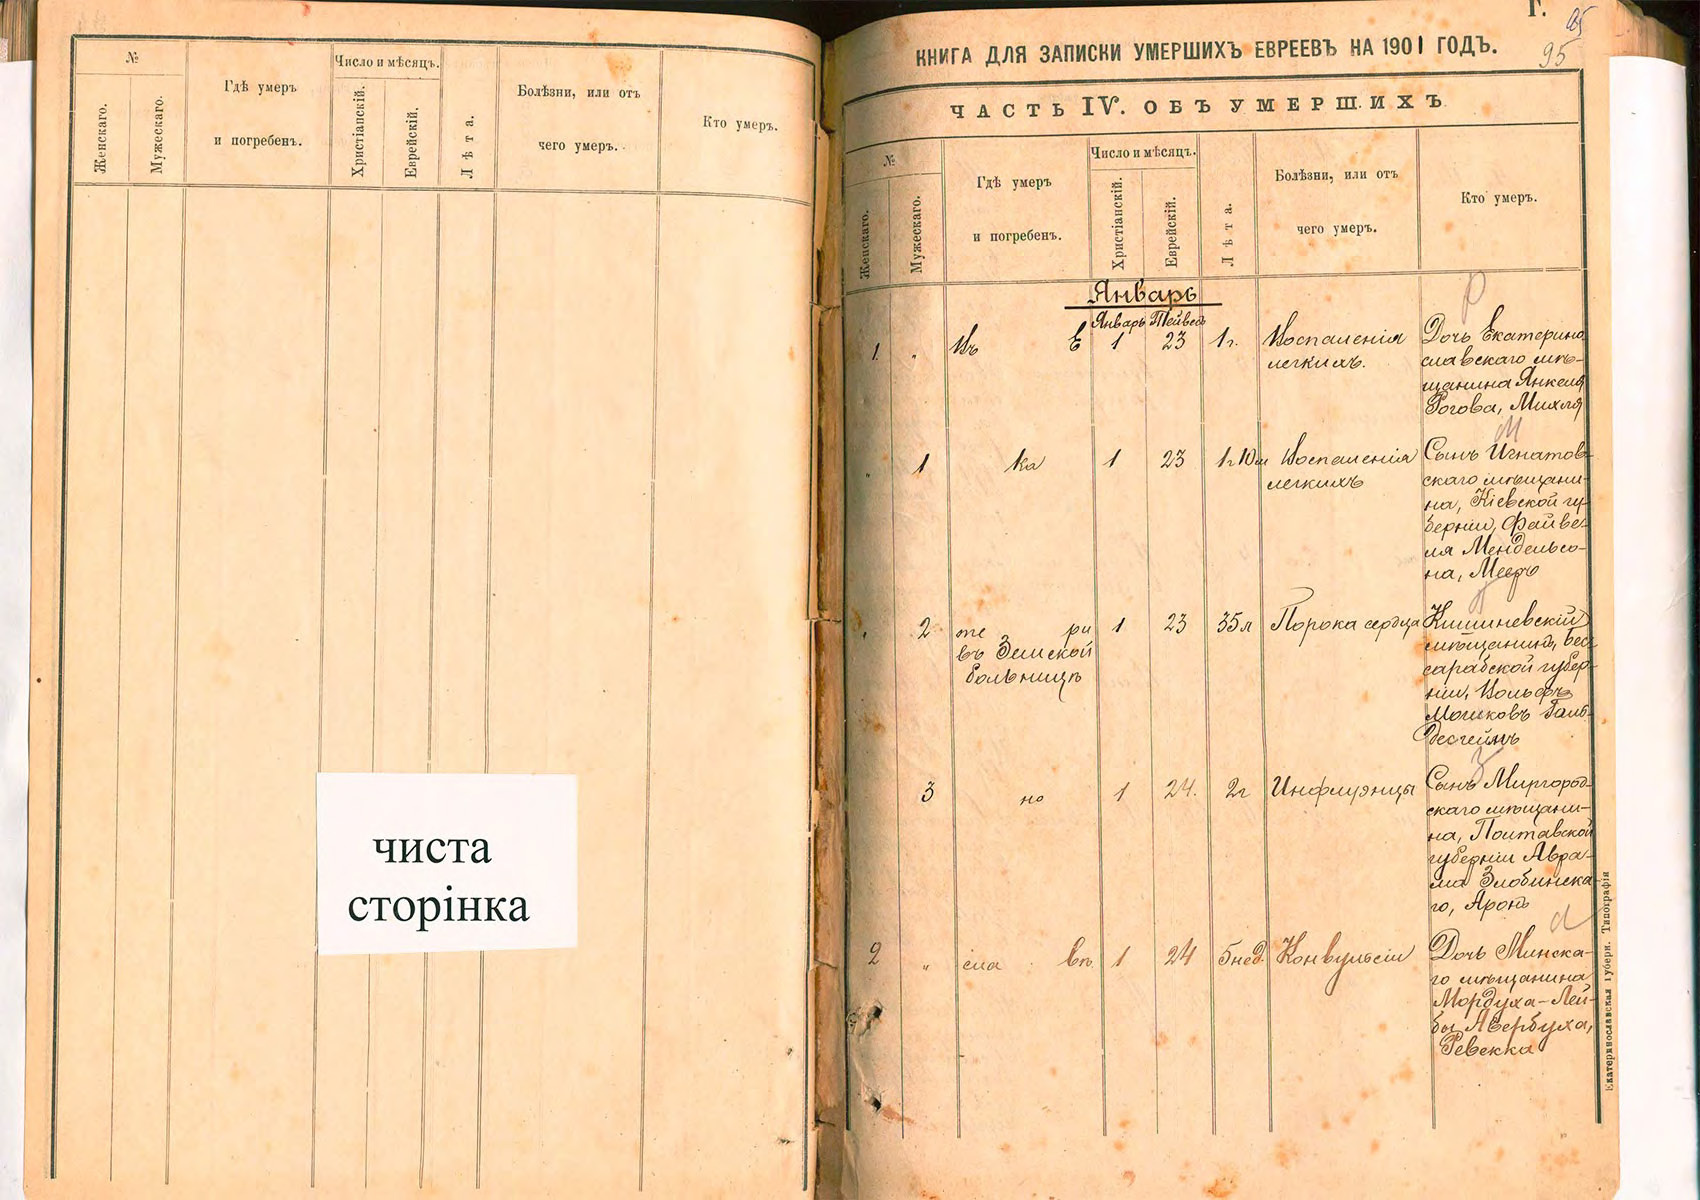 №
Женскаго.
Мужескаго.
Гдѣ умеръ
и погребенъ.
Число и мѣсяцъ.
Христіанскій.
Еврейскій.
Лѣта.
Болѣзни, или отъ
чего умеръ.
Кто умеръ.
чиста
сторінка
Г.
95
КНИГА ДЛЯ ЗАПИСКИ УМЕРШИХЪ ЕВРЕЕВЪ НА 1901 ГОДЪ.
95
ЧАСТЬ IV. ОБЪ УМЕРШИХЪ
№
Женскаго.
Мужескаго.
Гдѣ умеръ
и погребенъ.
Число и мѣсяцъ.
Христіанскій.
Еврейскій.
Лѣта.
Болѣзни, или отъ
чего умеръ.
Кто умеръ.
Январь
Январь Тейвесъ
1. " Въ Е 1 23 1г. Воспаленія Дочь Екатерино
легкихъ. славскаго мѣ-
щанина Янкеля
Рогова, Михля
" 1 ка 1 23 1г 10м Воспаленія Сынъ Игнатов-
легкихъ скаго мѣщани-
на, Кіевской гу-
берніи, Файве-
ля Мендельсо-
на, Мееръ
" 2 те ри 1 23 35л Порока сердца Кишиневскій
въ Земской мѣщанинъ, Бес-
больницѣ сарабской губер-
ніи, Вольфъ
Мошковъ Галь-
десгеймъ
3 но 1 24. 2г Инфлуэнцы Сынъ Миргород-
скаго мѣщани-
на, Полтавской
губерніи Авра-
ма Злобинска-
го, Аронъ
2 " сла вѣ 1 24 5нед. Конвульсіи Дочь Минска-
го мѣщанина
Мордуха-Лей-
бы Авербуха,
Ревекка
Екатеринославская Губерн. Типографія